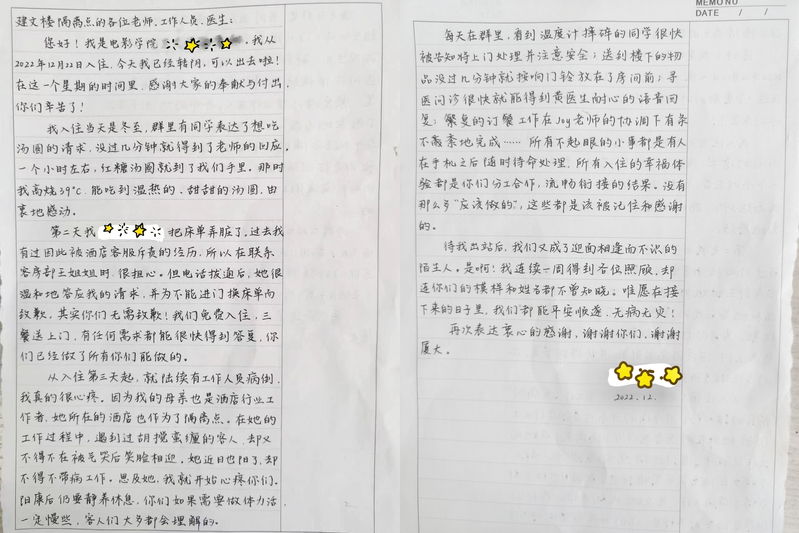 建文楼隔离点的各位老师、工作人员、医生：
您好！我是电影学院 ，我从
2022年12月22日入住，今天我已经转阴，可以出去啦！
在这一个星期的时间里，感谢大家的奉献与付出，
你们辛苦了！
我入住当天是冬至，群里有同学表达了想吃
汤圆的请求，没过几分钟就得到了老师的回应，
一个小时左右，红糖汤圆就到了我们手里。那时
我高烧39℃，能吃到温热的、甜甜的汤圆，由
衷地感动。
第二天我 把床单弄脏了，过去我
有过因此被酒店客服斥责的经历，所以在联系
客房部王姐姐时，很担心。但电话拨通后，她很
温和地答应我的请求，并为不能进门换床单而
致歉，其实你们无需致歉！我们免费入住，三
餐送上门，有任何需求都能很快得到答复，你
们已经做了所有你们能做的。
从入住第三天起，就陆续有工作人员病倒，
我真的很心疼。因为我的母亲也是酒店行业工
作者，她所在的酒店也作为了隔离点。在她的
工作过程中，遇到过胡搅蛮缠的客人，却又
不得不在被无奈后笑脸相迎。她近日也阳了，却
不得不带病工作。思及她，我就开始心疼你们。
阳康后仍要静养休息，你们如果需要做体力活
一定慢些，客人们大多都会理解的。
MEMO NO
DATE / /
每天在群里，看到温度计摔碎的同学很快
被告知将上门处理并注意安全；送到楼下的物
品没过几分钟就按响门铃放在了房间前；寻
医问诊很快就能得到黄医生耐心的语音回
复；繁复的订餐工作在Joy老师的协调下有条
不紊地完成……所有不起眼的小事都是有人
在手机之后随时待命处理，所有入住的幸福体
验都是你们分工合作，流畅衔接的结果。没有
那么多“应该做的”，这些都是该被记住和感谢
的。
待我出站后，我们又成了迎面相逢而不识的
陌生人。是啊！我连续一周得到各位照顾，却
连你们的模样和姓名都不曾知晓。唯愿在接
下来的日子里，我们都能平安顺遂、无病无灾！
再次表达衷心的感谢，谢谢你们，谢谢
厦大。
2022.12.